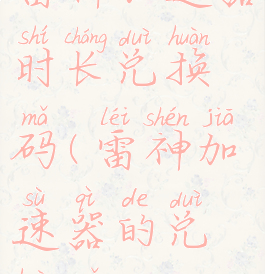 雷神加速器
shí cháng duì huàn
时长兑换
mǎ léi shén jiā
码(雷神加
sù qì de duì
速器的兑